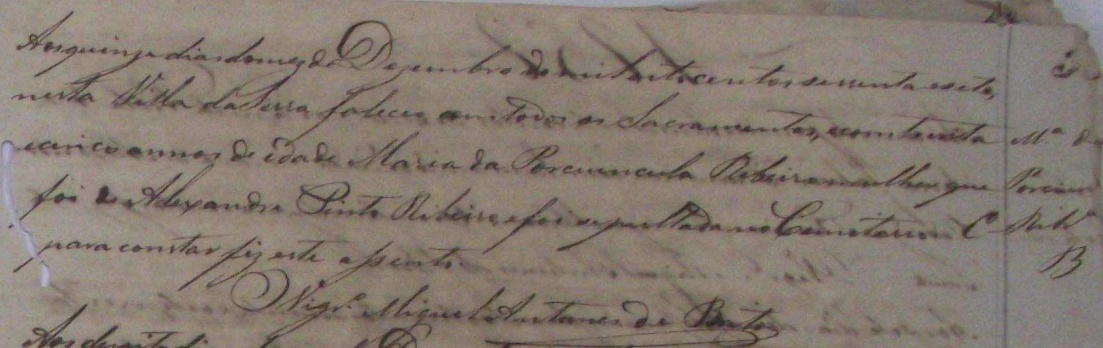 Aos quinze dias do mez de Dezembro de mil oitocentos secenta e sete,
nesta Villa da Serra faleceo com todos os Sacramentos, e com trinta
e cinco annos de idade Maria da Porciuncula Ribeiro mulher que
foi de Alexandre Pinto Ribeiro, e foi sepultada no Cemiterio. E
para constar fiz este assento.
Vigr.º Miguel Antunes de Brito
Mª da
Porciun
Ribrº
B
Aos dezoito di